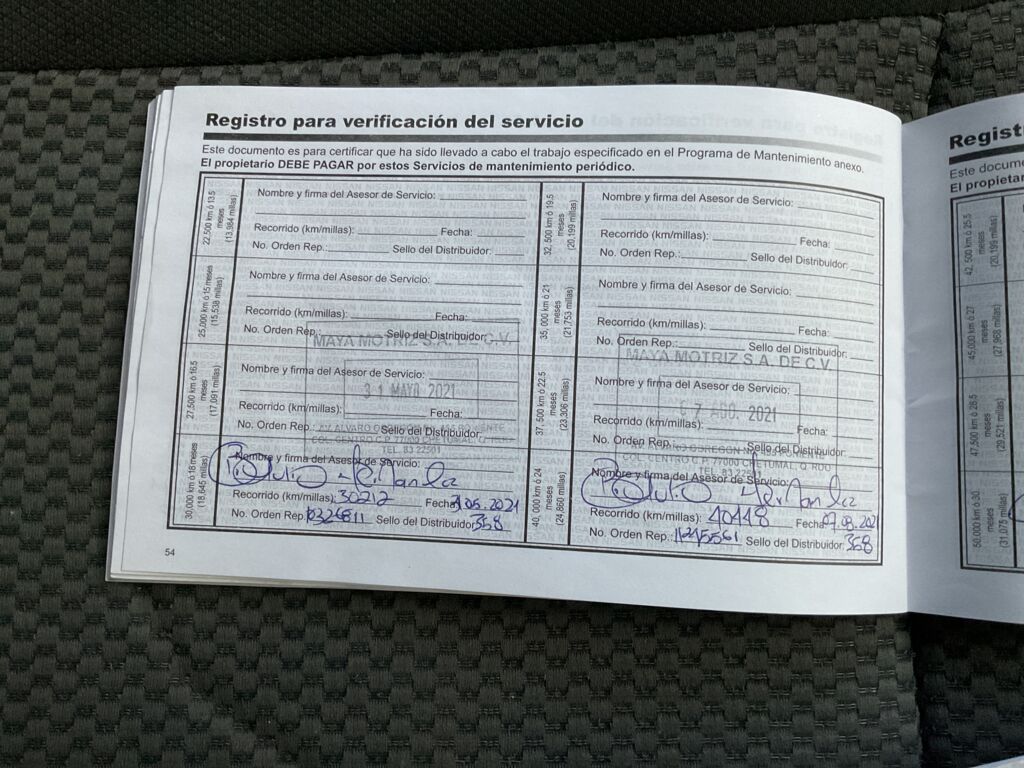 Registro para verificación del servicio
Este documento es para certificar que ha sido llevado a cabo el trabajo especificado en el Programa de Mantenimiento anexo.
El propietario DEBE PAGAR por estos Servicios de mantenimiento periódico.
22,500 km ó 13.5
meses
(13,984 millas)
Nombre y firma del Asesor de Servicio:
Recorrido (km/millas): Fecha:
No. Orden Rep.: Sello del Distribuidor:
25,000 km ó 15 meses
(15,538 millas)
Nombre y firma del Asesor de Servicio:
Recorrido (km/millas): Fecha:
No. Orden Rep.: Sello del Distribuidor:
MAYA MOTRIZ S.A. DE C.V.
27,500 km ó 16.5
meses
(17,091 millas)
Nombre y firma del Asesor de Servicio:
31 MAYO 2021
Recorrido (km/millas): Fecha:
No. Orden Rep.: Sello del Distribuidor:
AV. ALVARO
COL. CENTRO C.P. 77000 CHETUMAL, Q. ROO
TEL. 83 22501
30,000 km ó 18 meses
(18,645 millas)
Nombre y firma del Asesor de Servicio:
Recorrido (km/millas): 30212 Fecha: 31.05.2021
No. Orden Rep.: Sello del Distribuidor: 368
32,500 km ó 19.5
meses
(20,199 millas)
Nombre y firma del Asesor de Servicio:
Recorrido (km/millas): Fecha:
No. Orden Rep.: Sello del Distribuidor:
35,000 km ó 21
meses
(21,753 millas)
Nombre y firma del Asesor de Servicio:
Recorrido (km/millas): Fecha:
No. Orden Rep.: Sello del Distribuidor:
MAYA MOTRIZ S.A. DE C.V.
37,500 km ó 22.5
meses
(23,306 millas)
Nombre y firma del Asesor de Servicio:
07 AGO. 2021
Recorrido (km/millas): Fecha:
No. Orden Rep.: Sello del Distribuidor:
OBREGON
COL. CENTRO 77000 CHETUMAL, Q. ROO
TEL. 83 22501
40,000 km ó 24
meses
(24,860 millas)
Nombre y firma del Asesor de Servicio:
Recorrido (km/millas): 40448 Fecha: 07.08.2021
No. Orden Rep.: Sello del Distribuidor: 368
54
Registr
Este docume
El propietar
42,500 km ó 25.5
meses
45,000 km ó 27
meses
(27,968 millas)
47,500 km ó 28.5
meses
(29,521 millas)
50,000 km ó 30
meses
(31,075 millas)